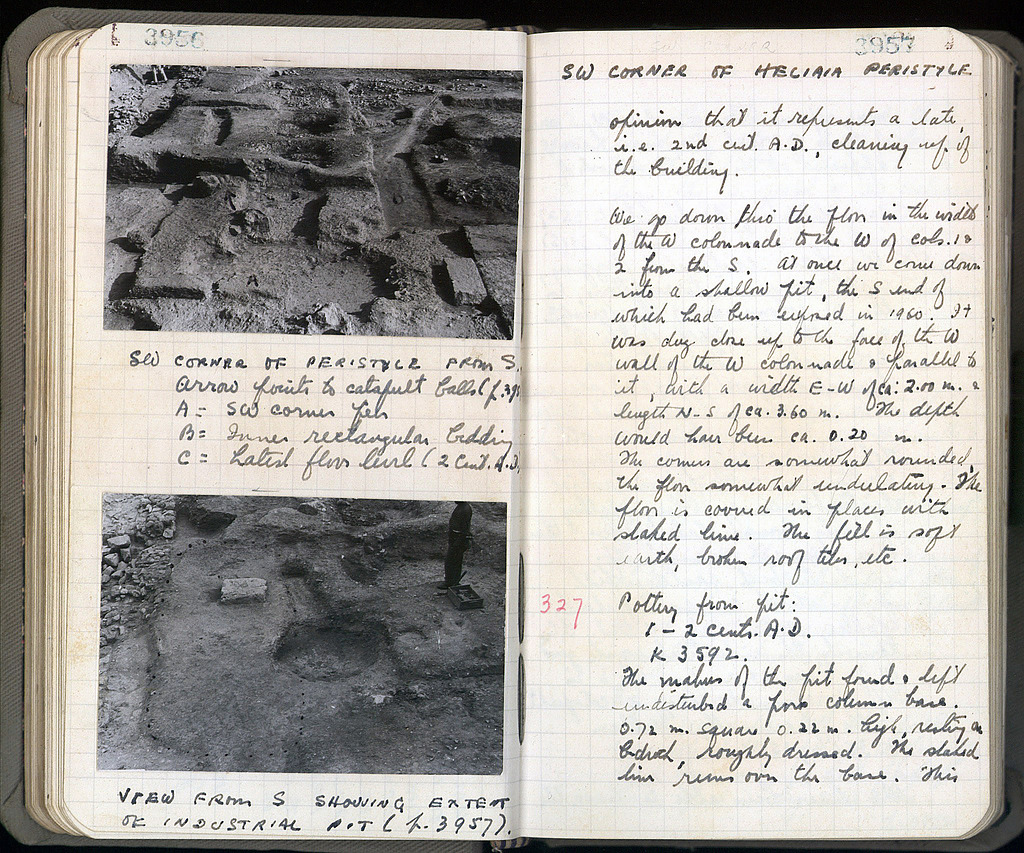 3956
SW CORNER OF PERISTYLE FROM S.
Arrow points to catapult balls (p. 39
A = SW corner pier
B = Inner rectangular bedding
C = Latest floor level (2 cent. A.D.
VIEW FROM S SHOWING EXTENT
OF INDUSTRIAL PIT (p. 3957).
3957
SW CORNER OF HELIAIA PERISTYLE
opinion that it represents a late,
i.e. 2nd cent. A.D., cleaning up of
the building.
We go down thro the floor in the width
of the W colonnade to the W of cols. 1 &
2 from the S. At once we come down
into a shallow pit, the S end of
which had been exposed in 1960. It
was dug close up to the face of the W
wall of the W colonnade & parallel to
it, with a width E-W of ca. 2.00 m. &
length N-S of ca. 3.60 m. The depth
would have been ca. 0.20 m.
The corners are somewhat rounded,
the floor somewhat undulating. The
floor is covered in places with
slaked lime. The fill is soft
earth, broken roof tiles, etc.
327
Pottery from pit:
1 - 2 cents. A.D.
K 3592.
The makers of the pit found & left
undisturbed a poros column base.
0.72 m. square 0.22 m. high, resting on
bedrock, roughly dressed. The slaked
lime runs over the base. This